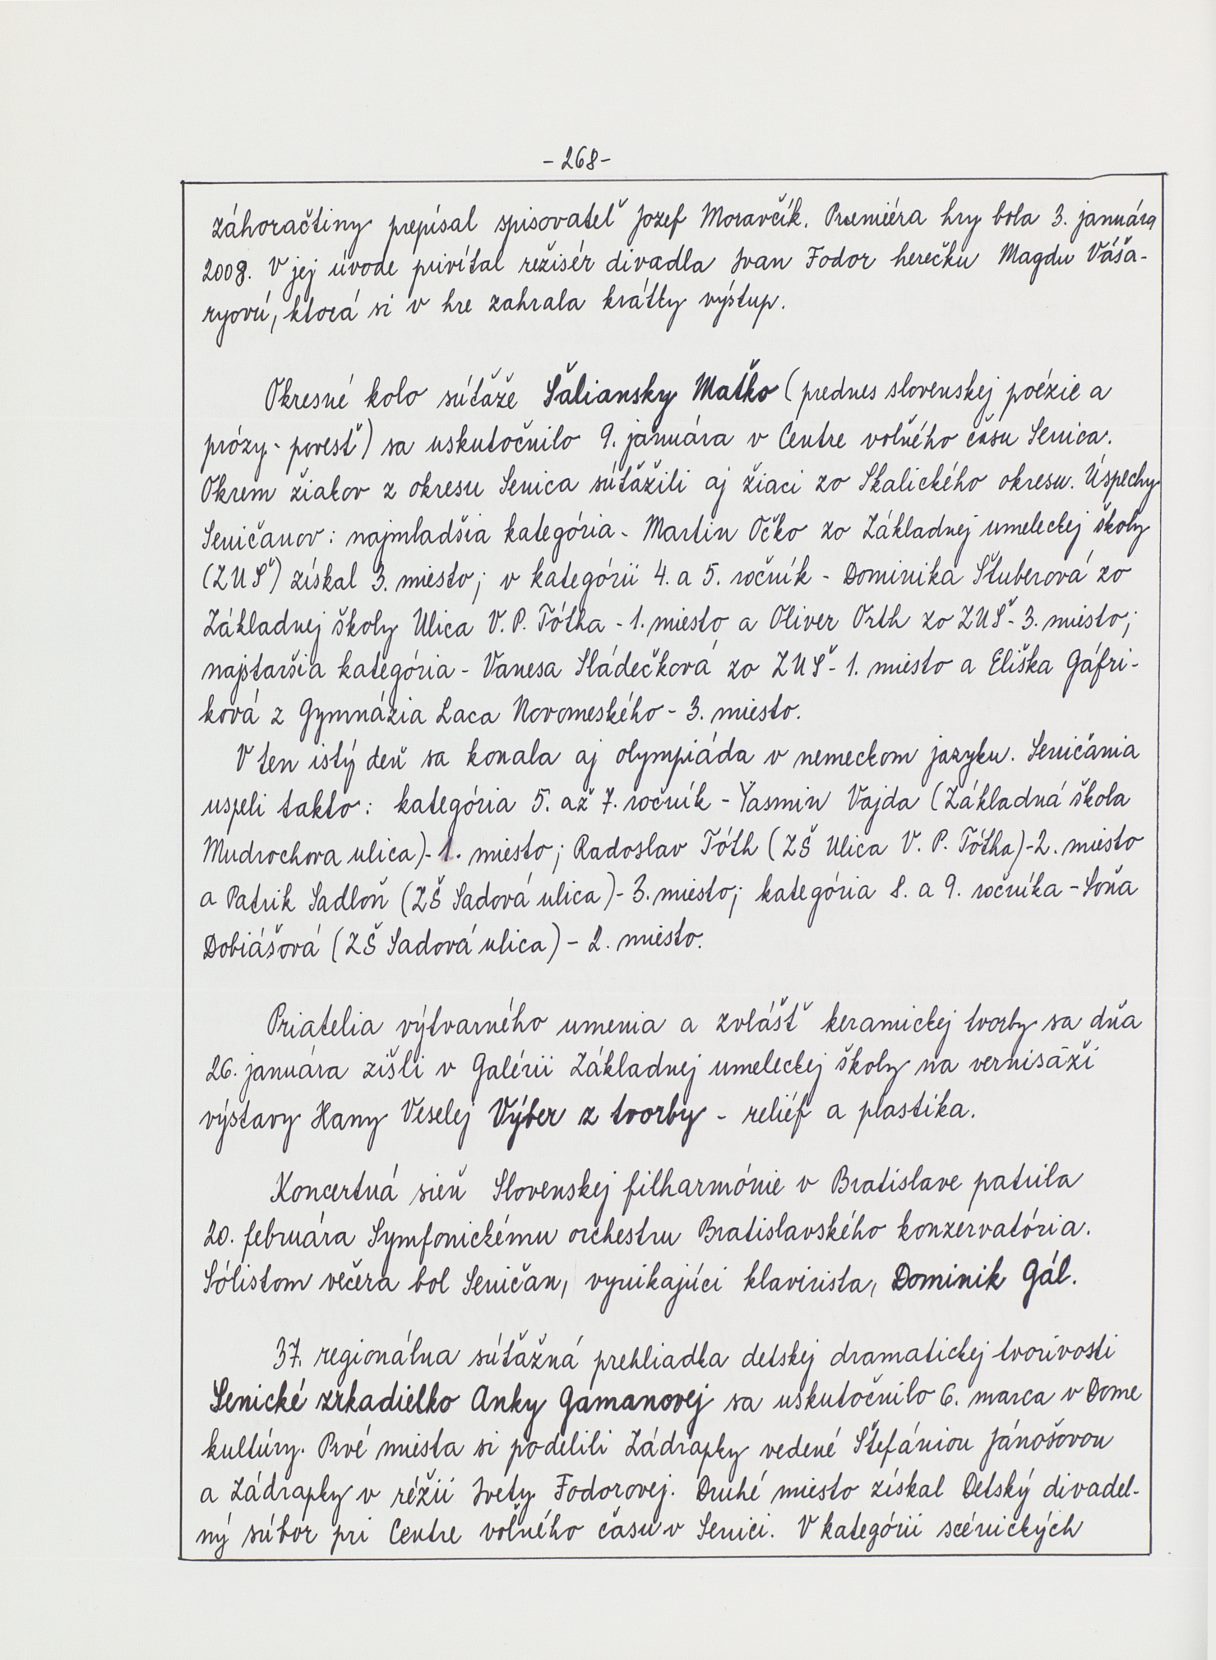 - 268 -
záhoračtiny prepísal spisovateľ Jozef Moravčík. Premiéra hry bola 3. januára
2008. V jej úvode privítal režisér divadla Ivan Fodor herečku Magdu Váša-
ryovú, ktorá si v hre zahrala krátky výstup.
Okresné kolo súťaže Šaliansky Maťko (prednes slovenskej poézie a
prózy - povesť) sa uskutočnilo 9. januára v Centre voľného času Senica.
Okrem žiakov z okresu Senica súťažili aj žiaci zo Skalického okresu. Úspechy
Seničanov: najmladšia kategória - Martin Očko zo Základnej umeleckej školy
(ZUŠ) získal 3. miesto; v kategórii 4. a 5. ročník - Dominika Štuberová zo
Základnej školy Ulica V. P. Tótha - 1. miesto a Oliver Orth zo ZUŠ - 3. miesto;
najstaršia kategória - Vanesa Sládečková zo ZUŠ - 1. miesto a Eliška Gáfri-
ková z Gymnázia Laca Novomeského - 3. miesto.
V ten istý deň sa konala aj olympiáda v nemeckom jazyku. Seničania
uspeli takto: kategória 5. až 7. ročník - Yasmin Vajda (Základná škola
Mudrochova ulica) - 1. miesto; Radoslav Tóth (ZŠ Ulica V. P. Tótha) - 2. miesto
a Patrik Sadloň (ZŠ Sadová ulica) - 3. miesto; kategória 8. a 9. ročníka - Soňa
Dobiášová (ZŠ Sadová ulica) - 2. miesto.
Priatelia výtvarného umenia a zvlášť keramickej tvorby sa dňa
26. januára zišli v Galérii Základnej umeleckej školy na vernisáži
výstavy Hany Veselej Výber z tvorby - reliéf a plastika.
Koncertná sieň Slovenskej filharmónie v Bratislave patrila
20. februára Symfonickému orchestru Bratislavského konzervatória.
Sólistom večera bol Seničan, vynikajúci klavirista, Dominik Gál.
37. regionálna súťažná prehliadka detskej dramatickej tvorivosti
Senické zrkadielko Anky Gamanovej sa uskutočnilo 6. marca v Dome
kultúry. Prvé miesta si podelili Zádrapky vedené Štefániou Jánošovou
a Zádrapky v réžii Ivety Fodorovej. Druhé miesto získal Detský divadel-
ný súbor pri Centre voľného času v Senici. V kategórii scénických